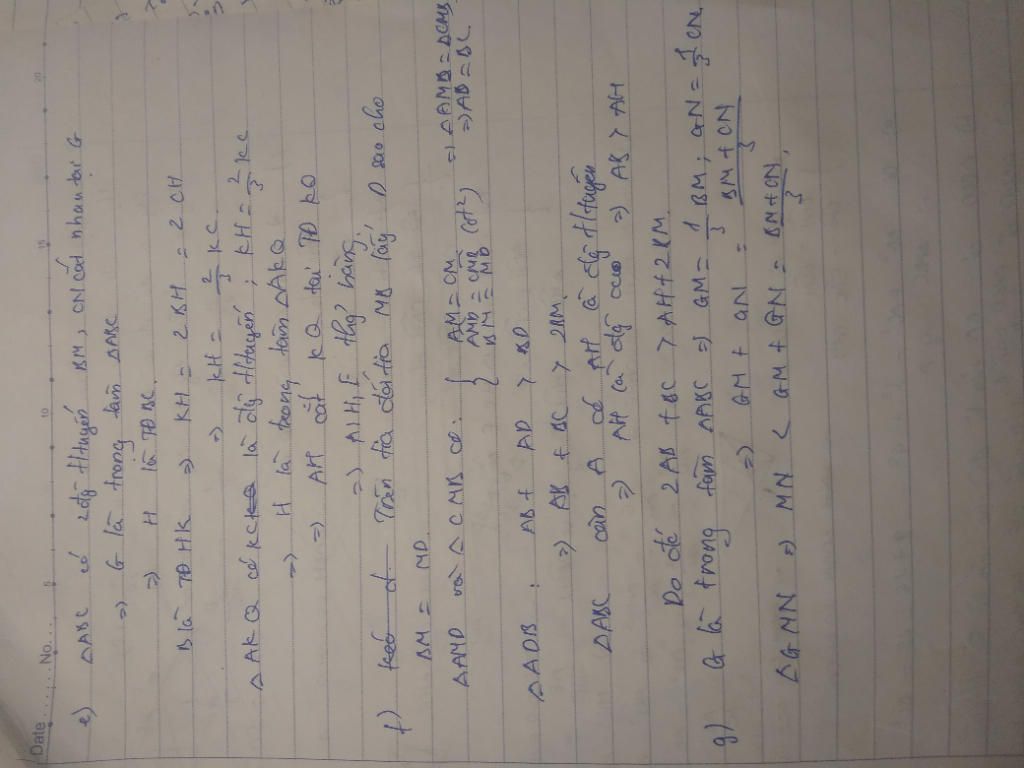 Date No.
5 10 15 20
e) ΔABC có 2 đg T.tuyến BM, CN cắt nhau tại G
=> G là trọng tâm ΔABC
=> H là TĐ BC
B là TĐ HK => KH = 2BH = 2CH
=> KH = 2/3 KC
ΔAKQ có KC là đg T.tuyến ; KH = 2/3 KC
=> H là trọng tâm ΔAKQ
=> AH cắt KQ tại TĐ KQ
=> A, H, F thg? hàng
f) Trên tia đối tia MB lấy D sao cho
BM = MD
ΔAMD và ΔCMB có: { AM = CM
AMD = CMB (đđ) => ΔAMD = ΔCMB
BM = MD => AD = BC
ΔADB : AB + AD > BD
=> AB + BC > 2BM
ΔABC cân A có AH là đg T.tuyến
=> AH là đg cao => AB > AH
Do đó 2AB + BC > AH + 2BM
g) G là trọng tâm ΔABC => GM = 1/3 BM ; GN = 1/3 CN
=> GM + GN = BM + CN / 3
ΔGMN => MN < GM + GN = BM + CN / 3